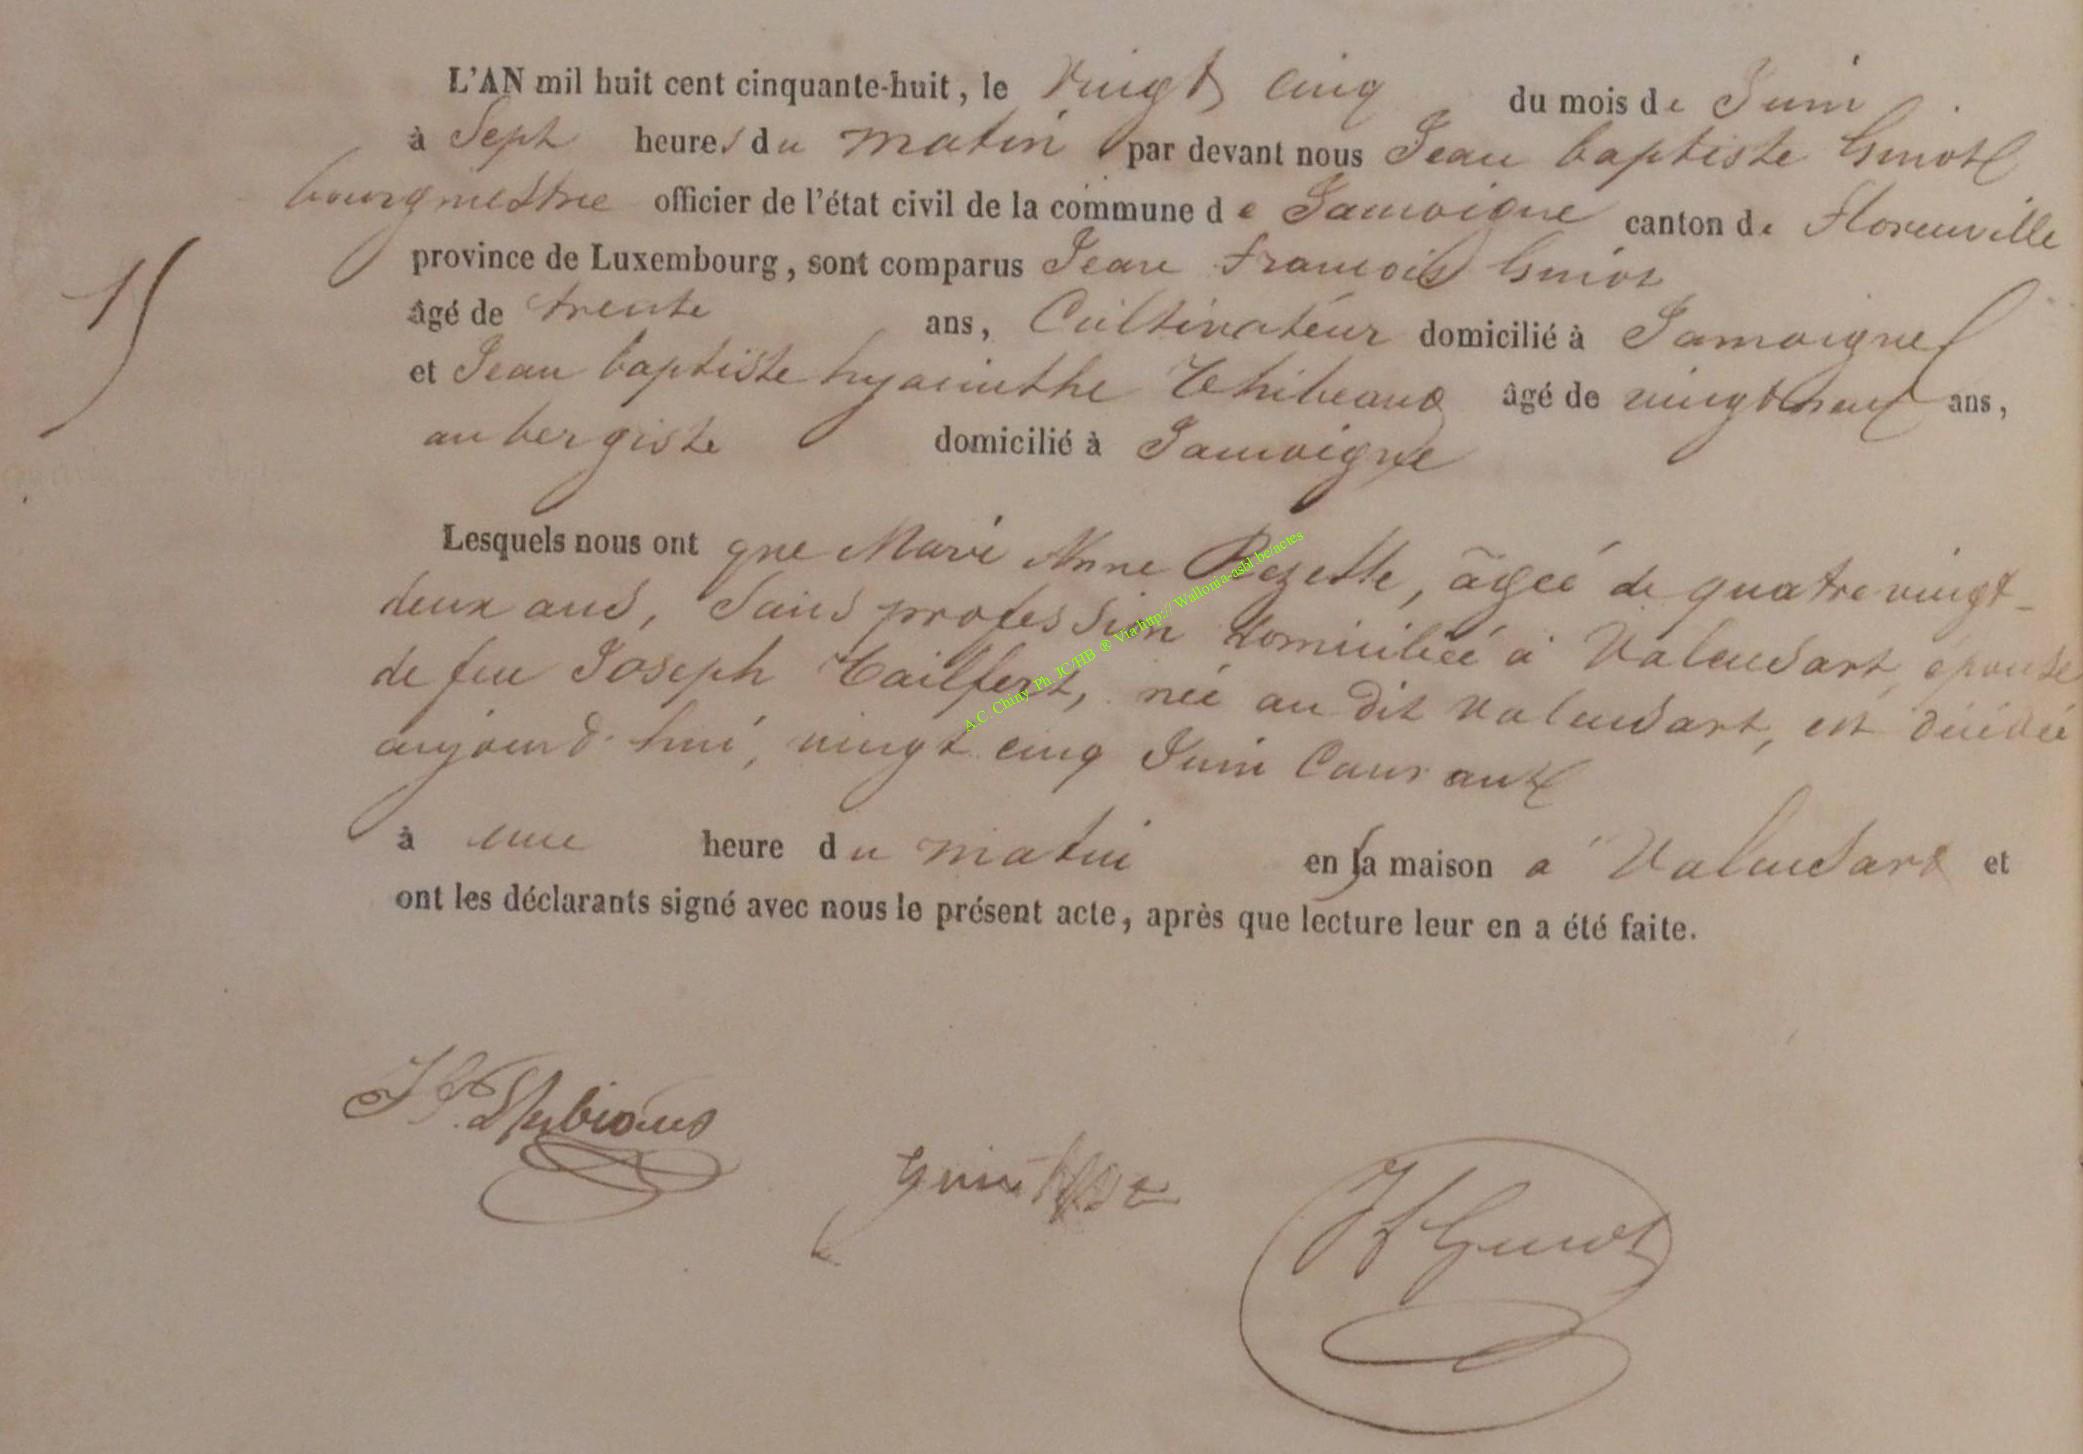 L'AN mil huit cent cinquante-huit, le Vingt cinq du mois de Juin
à Sept heures du matin par devant nous Jean baptiste Guiot
bourgmestre officier de l'état civil de la commune de Jamoigne canton de Florenville
province de Luxembourg, sont comparus Jean francois Guiot
âgé de trente ans, Cultivateur domicilié à Jamoigne
et Jean baptiste hyacinthe Thibeaux âgé de vingt neuf ans,
aubergiste domicilié à Jamoigne
15
Lesquels nous ont que Marie Anne Rezette, âgée de quatre vingt-
deux ans, Sans profession domiciliée à Valensart, epouse
de feu Joseph Tailfert, née au dit Valensart, est décédée
aujourd'hui, vingt cinq Juin Courant
à une heure du matin en sa maison a Valensart et
ont les déclarants signé avec nous le présent acte, après que lecture leur en a été faite.
A.C. Chiny Ph. JC/HB ® Via http://Wallonia-asbl.be/actes
Guiot
JF Guiot